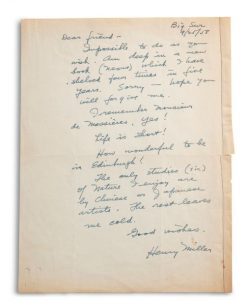 Big Sur
9/25/58
Dear friend –
Impossible to do as you
wish. Am deep in a new
book (Nexus) which I have
shelved four times in five
years. Sorry — hope you
will forgive me.
I remember Monsieur
de Mezières, yes!
Life is short!
How wonderful to be
in Edinburgh!
The only studies (?)
of Nature I enjoy are
by Chinese or Japanese
artists. The rest leaves
me cold.
Good wishes.
Henry Miller